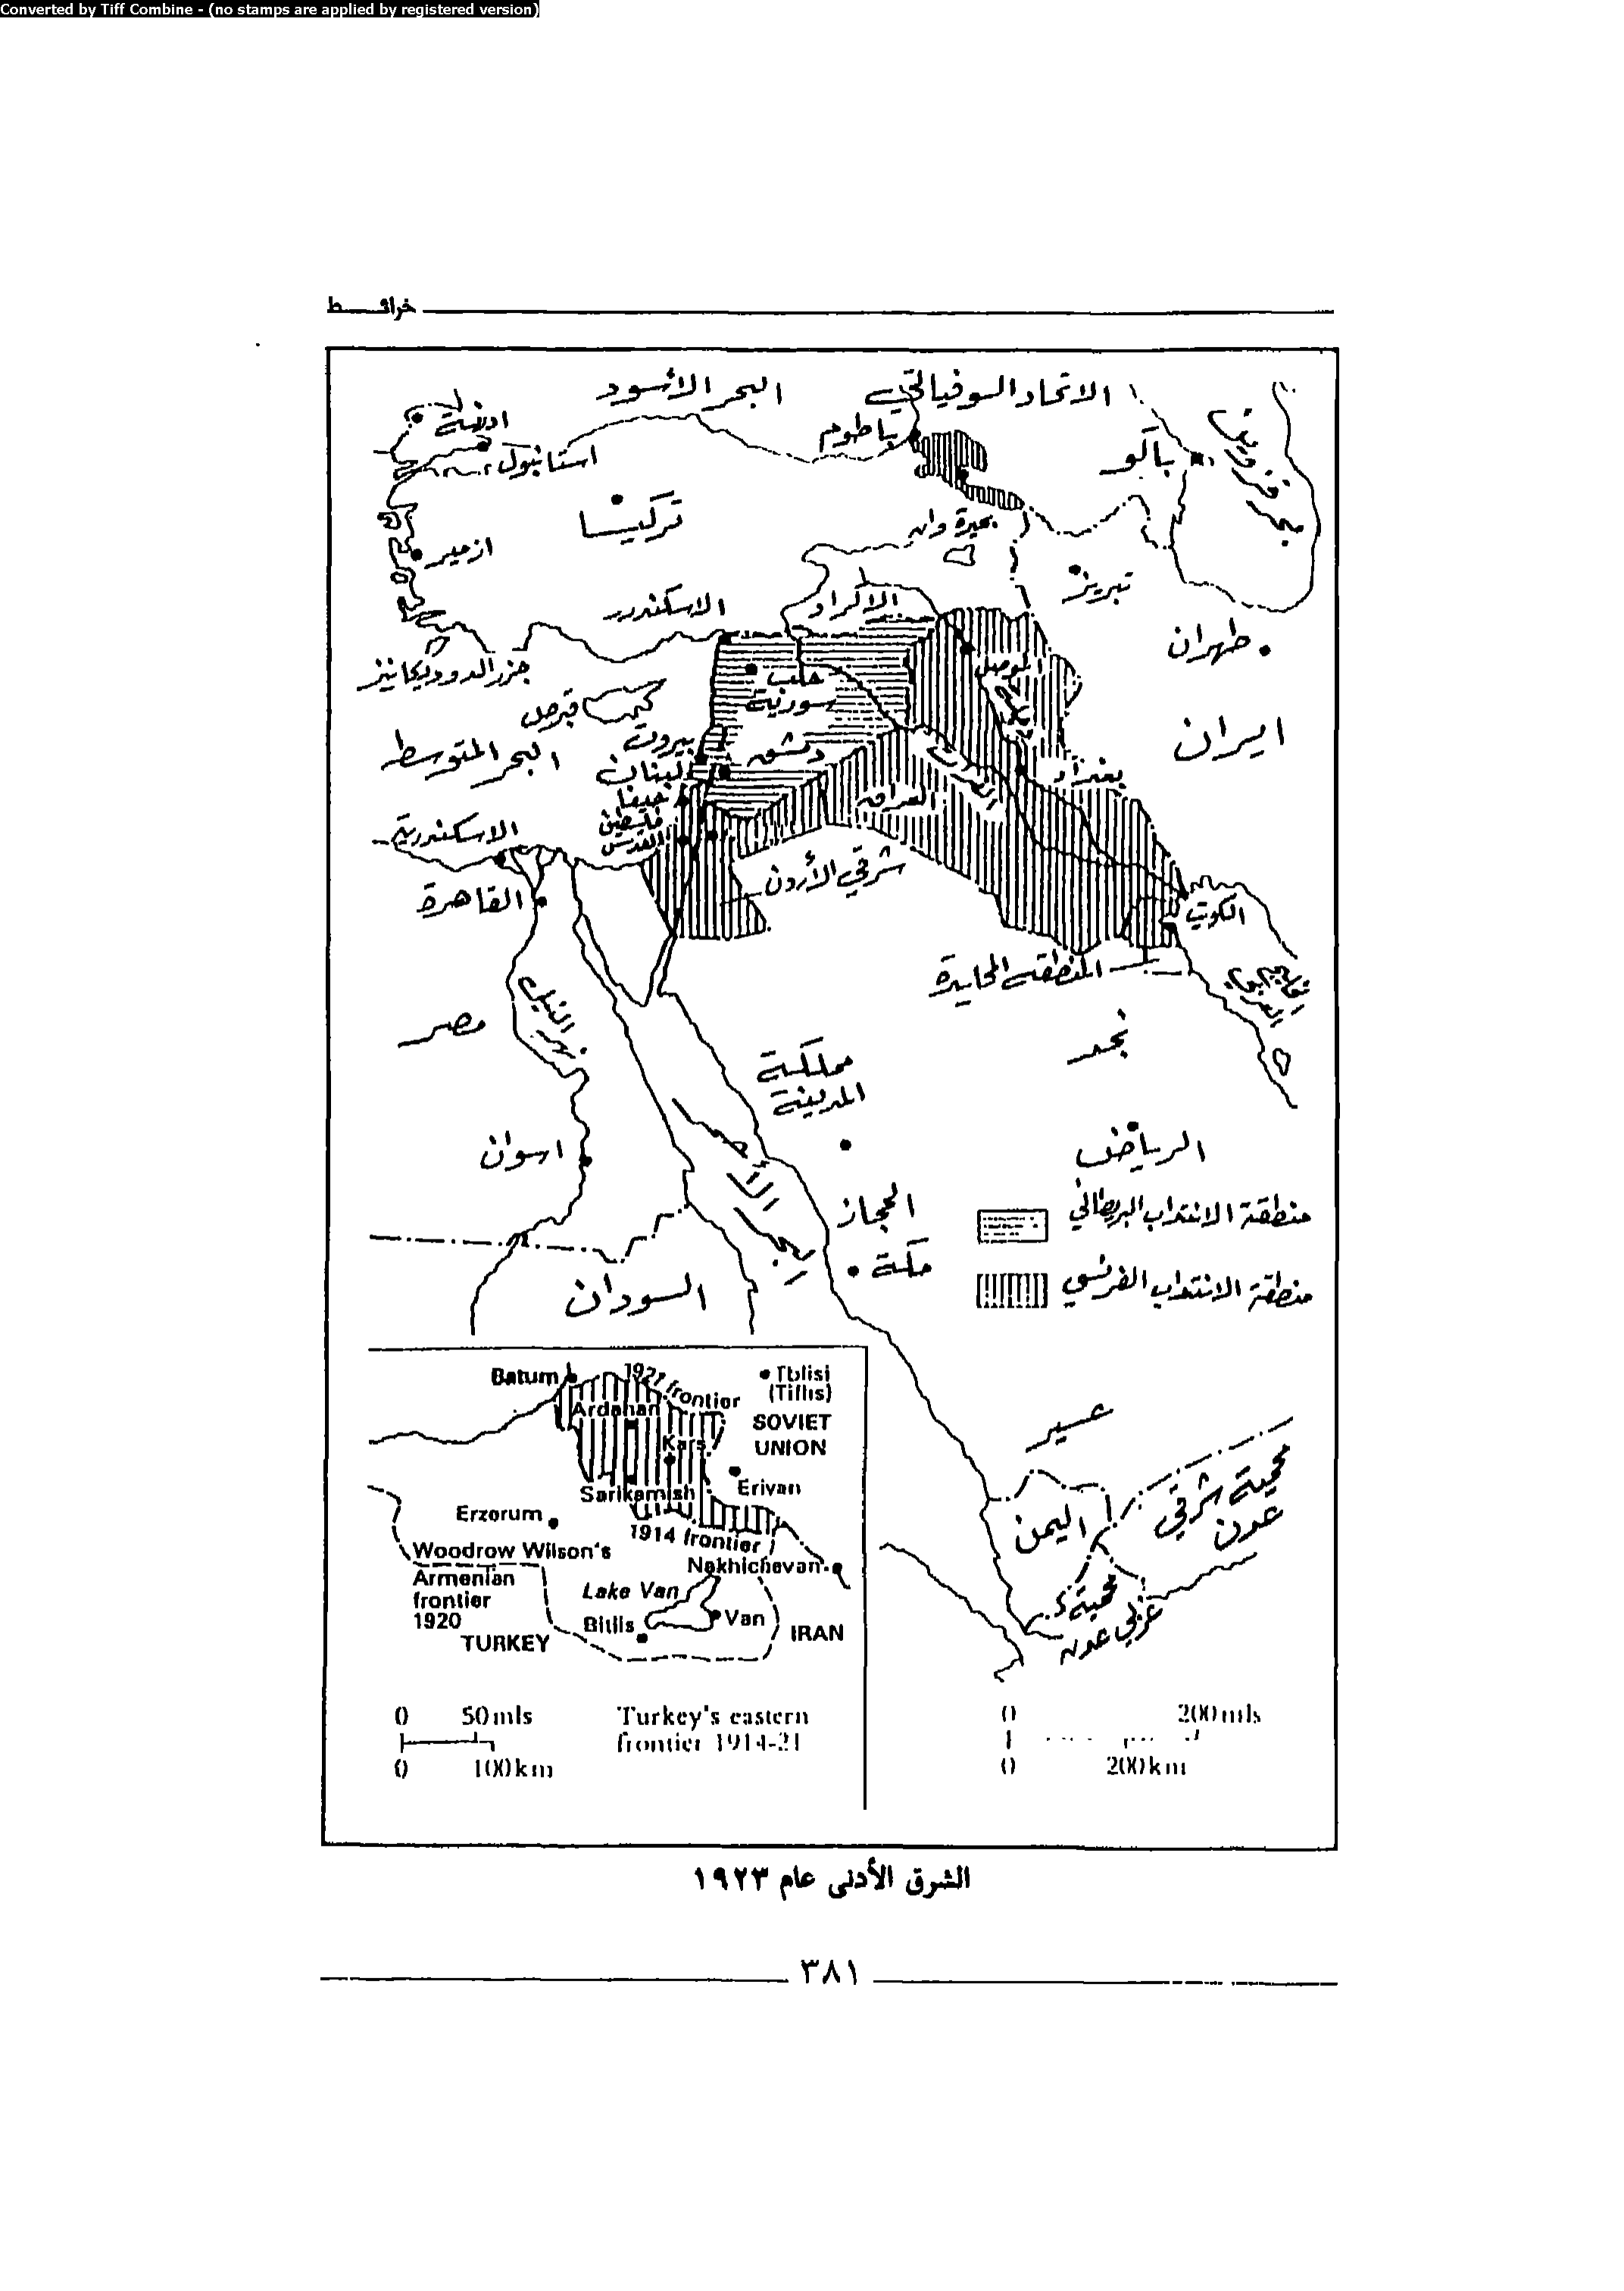 Converted by Tiff Combine - (no stamps are applied by registered version)
خرائـــط
البحر الأسود
الاتحاد السوفياتي
ادرنة
استانبول
باطوم
باكو
بحر قزوين
تركيا
بحيرة وان
ازمير
تبريز
الاسكندرر
الاكراد
طهران
جزر الدوديكانيز
الموصل
حلب
سورية
قبرص
ايران
بيروت
البحر المتوسط
دمشق
لبنان
بغداد
الفرات
حيفا
العراق
فلسطين
القدس
الاسكندرية
شرقي الأردن
القاهرة
الكويت
المنطقة المحايدة
نهر النيل
مصر
نجد
مملكة
المدينة
اسوان
الرياض
الحجاز
منطقة الانتداب البريطاني
مكة
منطقة الانتداب الفرنسي
السودان
عسير
محمية شرقي
عدن
اليمن
محمية
غربي عدن
Batum
1921 frontier
Tblisi
(Tiflis)
Ardahan
SOVIET
UNION
Kars
Erivan
Sarikamish
Erzorum
1914 frontier
Woodrow Wilson's
Armenian
frontier
1920
Nakhichevan
Lake Van
Van
Bitlis
IRAN
TURKEY
0 50 mls
0 100 km
Turkey's eastern
frontier 1914-21
0 200 mls
0 200 km
الشرق الأدنى عام ١٩٢٣
٣٨١